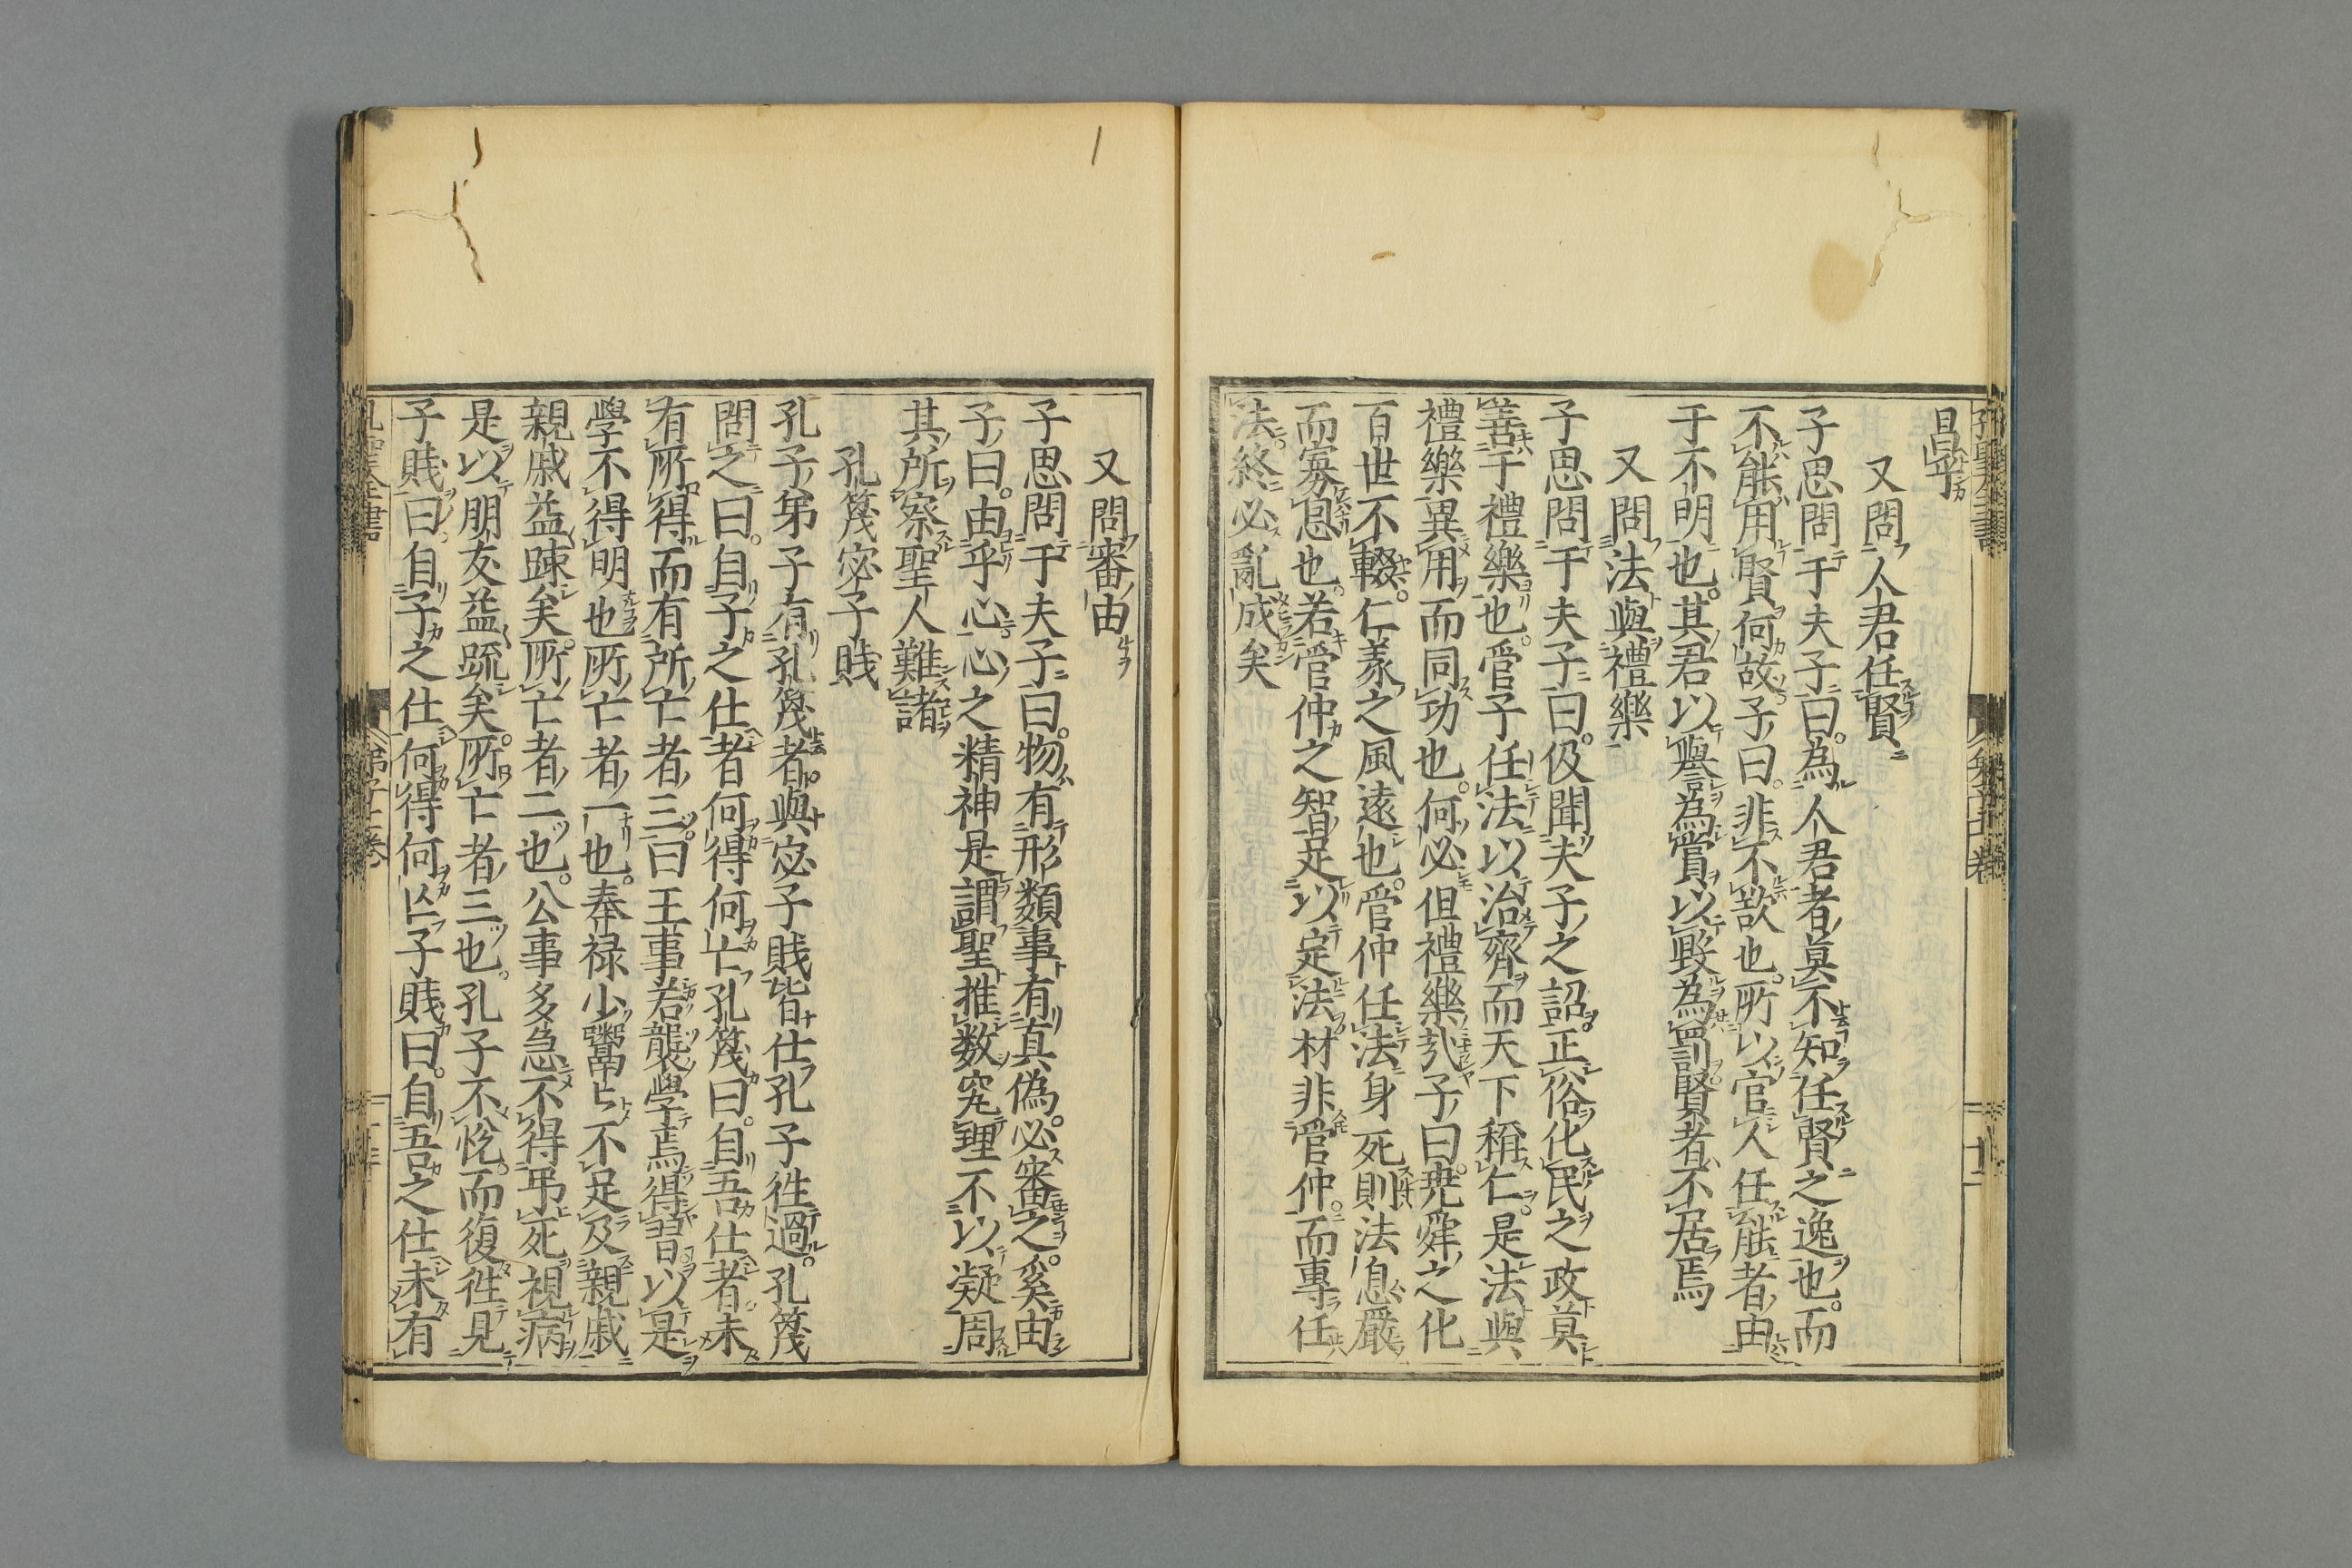 昌乎
又問人君任賢
子思問于夫子曰。為人君者莫不知任賢之逸也。而
不能用賢何故子曰。非不欲也。所以官人任能者由
于不明也。其君以譽為賞以毀為罰賢者不居焉
又問法與禮樂
子思問于夫子曰。伋聞夫子之詔。正俗化民之政莫
善于禮樂也。管子任法以治齊而天下稱仁。是法與
禮樂異用而同功也。何必但禮樂哉子曰。堯舜之化
百世不輟。仁義之風遠也。管仲任法身死則法息嚴
而寡恩也。若管仲之智足以定法材非管仲。而專任
法。終必亂成矣
又問審由
子思問于夫子曰。物有形類事有真偽。必審之。奚由
子曰。由乎心。心之精神是謂聖推数究理不以凝周
其所察聖人難諸
孔篾宓子賎
孔子弟子有孔篾者與宓子賎皆仕孔子徃過。孔篾
問之曰。自子之仕者何得何亡孔篾曰。自吾仕者未
有所得而有所亡者三。曰王事若襲學焉得習以是
學不得明也所亡者一也。奉禄少饘粥不足及親戚
親戚益踈矣。所亡者二也。公事多急不得弔死視病
是以朋友益䟽矣。所亡者三也。孔子不悅。而復徃見
子賎曰。自子之仕何得何亡子賎曰。自吾之仕未有